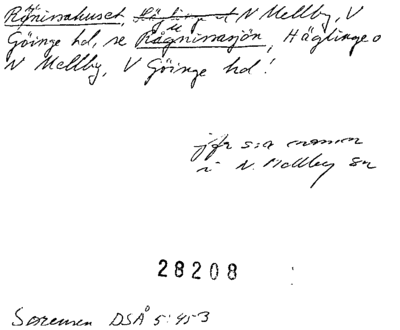 Rågnissahuset, Häglinge o N Mellby, V
Göinge hd, se Rågnissasjön, Häglinge o
N Mellby, V Göinge hd!
jfr s:a namn
i N. Mellby sn
28208
Sørensen DSÅ 5:453